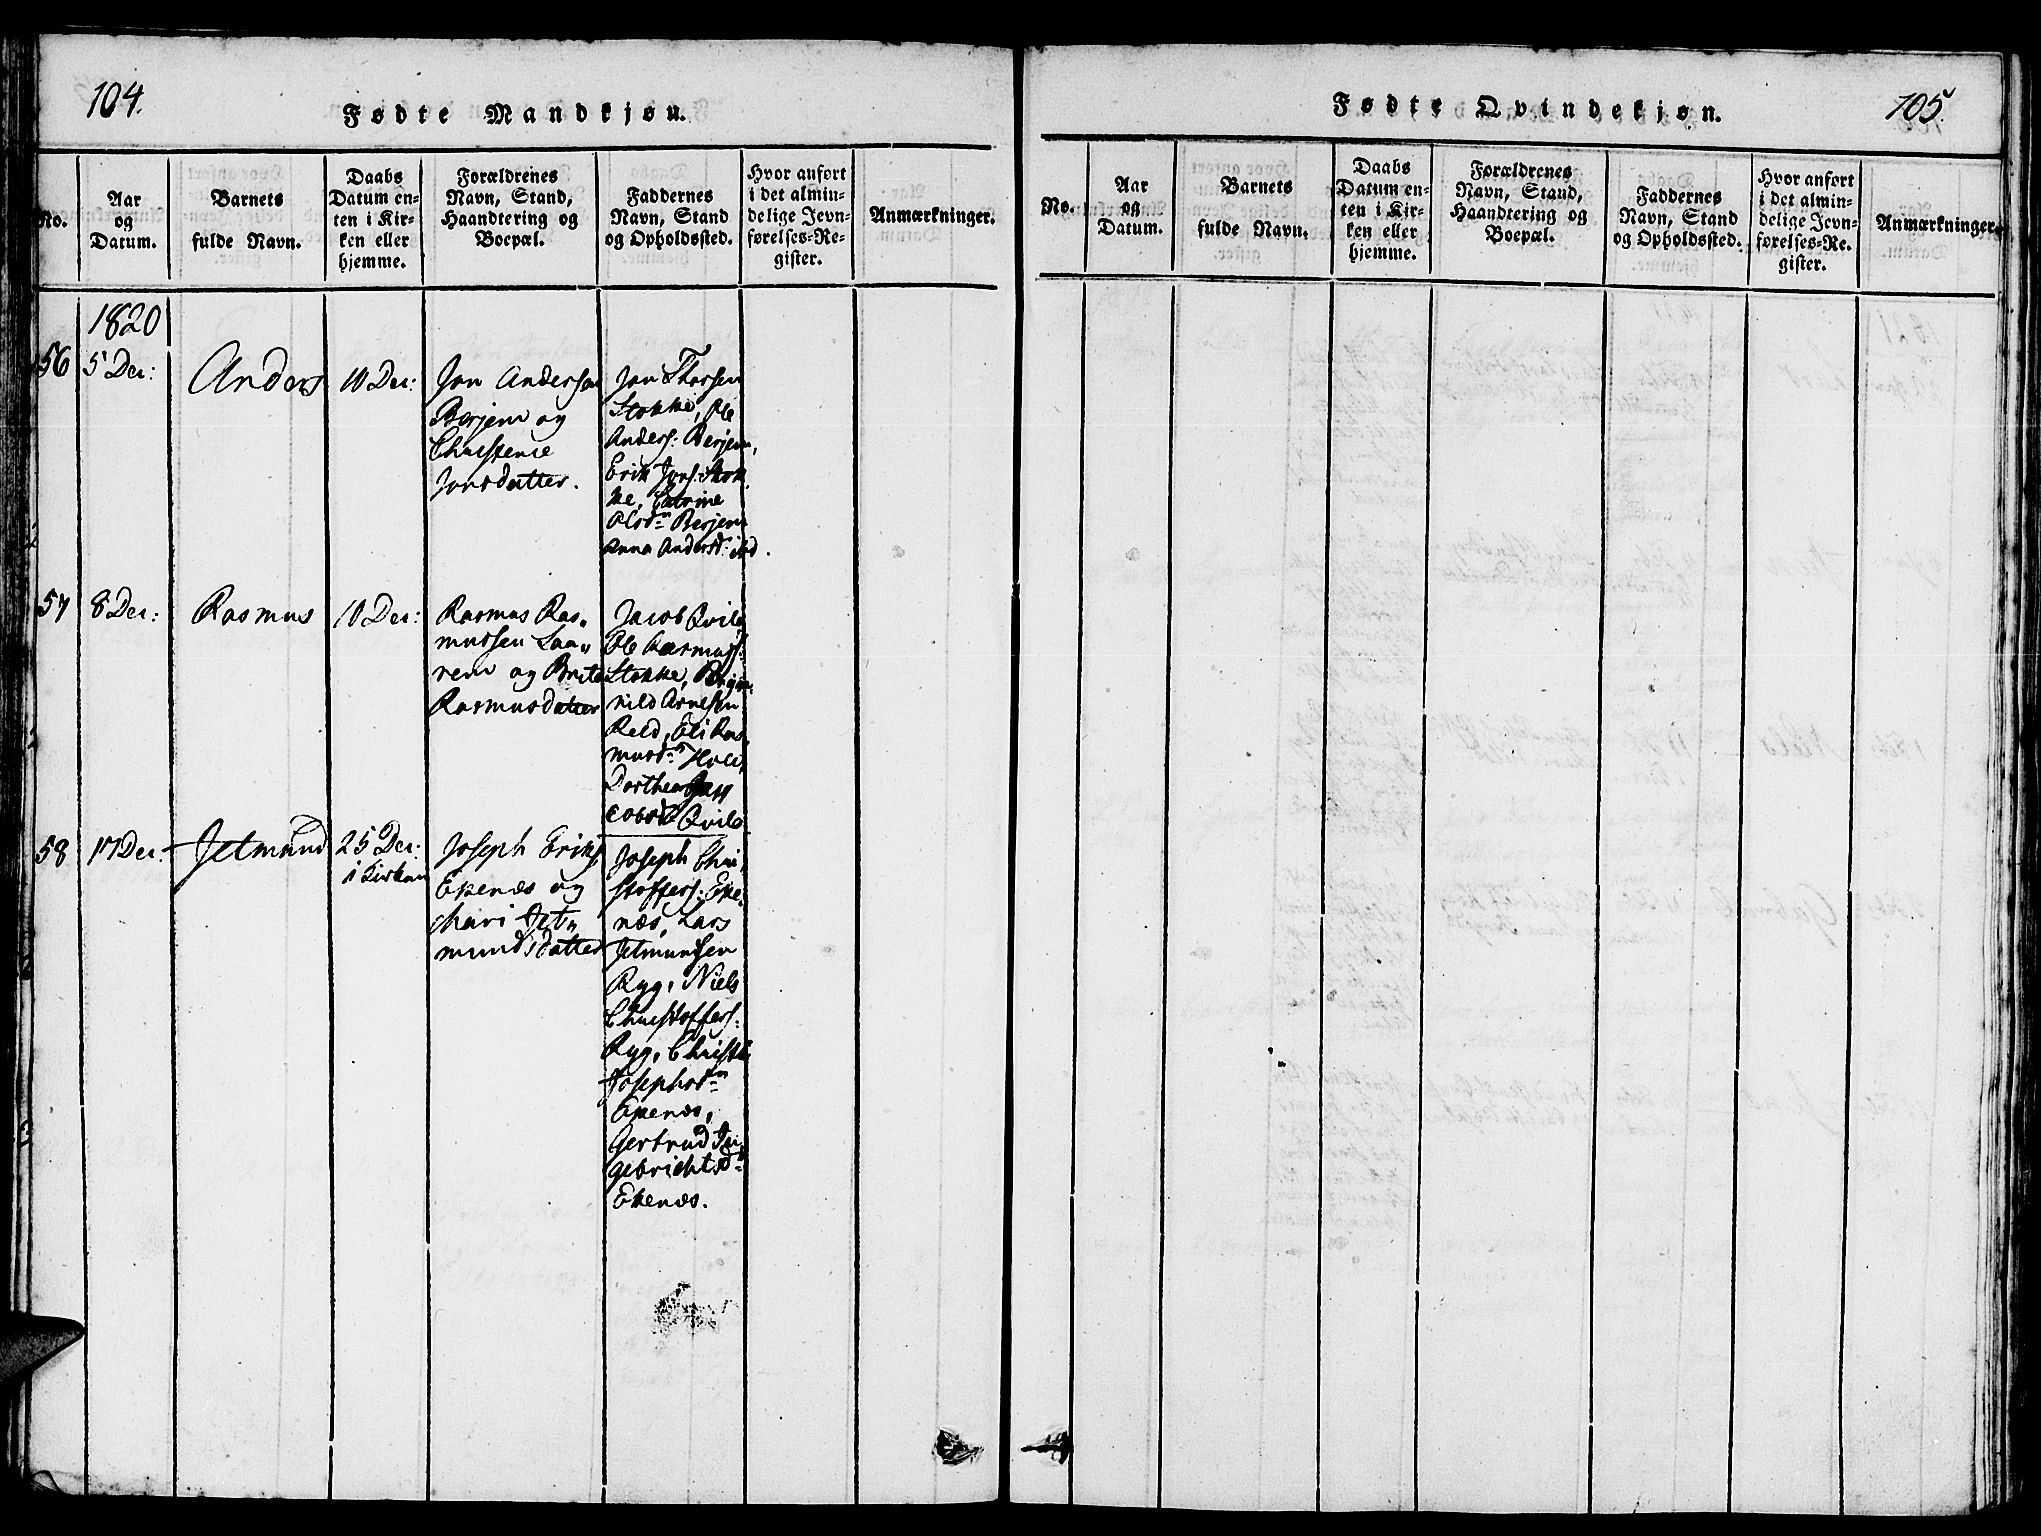 104.
Fødte Mandkjøn.
No.
Aar
og
Datum.
Barnets
fulde Navn.
Daabs
Datum en-
ten i Kir-
ken eller
hjemme.
Forældrenes
Navn, Stand,
Haandtering og
Boepæl.
Faddernes
Navn, Stand
og Opholdssted.
Hvor anført
i det almin-
delige Jevn-
førelses-Re-
gister.
Anmærkninger.
1820
56
5 Dec:
Anders
10 Dec:
Jon Andersen
Berjem og
Christence
Jonsdatter.
Jon Thorsen
Stokke, Ole
Anders: Berjem,
Erik Jons: Stok
ke, Catrine
Olsdn Berjem
Anna Andersd: ibd.
57
8 Dec:
Rasmus
10 Dec:
Rasmus Ras„
mussen Laa„
nem og Brite
Rasmusdatter
Jacob Qvile,
Ole Rasmuss:
Stokke,
nild Arnesen
Reld, Eli Ras„
musdn Hole,
Dorthea Ja„
cobsd Qvile
58
17 Dec:
Jetmund
25 Dec:
i Kirken
Joseph Eriks
Ekenæs og
Mari Jet„
mundsdatter
Joseph Chri„
stoffers: Eke„
næs, Lars
Jetmundsen
Ryg, Niels
Christoffers:
Ryg, Christi
Josephsdn
Ekenæs,
Gertrud In„
gebrichtsdn
Ekenæs.
Fødte Qvindekjøn.
105.
No.
Aar
og
Datum.
Barnets
fulde Navn.
Daabs
Datum en-
ten i Kir-
ken eller
hjemme.
Forældrenes
Navn, Stand,
Haandtering og
Boepæl.
Faddernes
Navn, Stand
og Opholdssted.
Hvor anført
i det almin-
delige Jevn-
førelses-Re-
gister.
Anmærkninger.